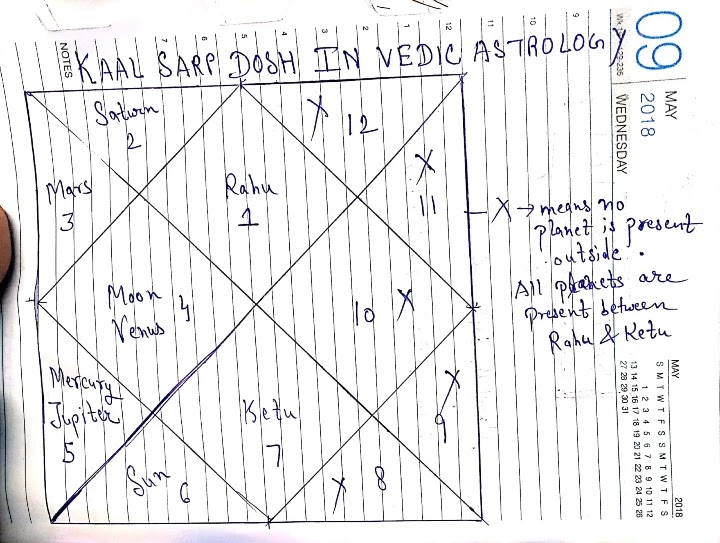 KAAL SARP DOSH IN VEDIC ASTROLOGY
NOTES
7
6
5
4
3
2
1
12
11
10
9
09
MAY
2018
WEDNESDAY
Saturn
2
X 12
Mars
3
Rahu
1
X
11
X → means no
planet is present
outside.
All planets are
present between
Rahu & Ketu
Moon
Venus 4
10 X
Mercury
Jupiter
5
Ketu
7
X
9
Sun 6
X 8
MAY 2018
S M T W T F S S M T W T F S
1 2 3 4 5 6 7 8 9 10 11 12
13 14 15 16 17 18 19 20 21 22 23 24 25 26
27 28 29 30 31